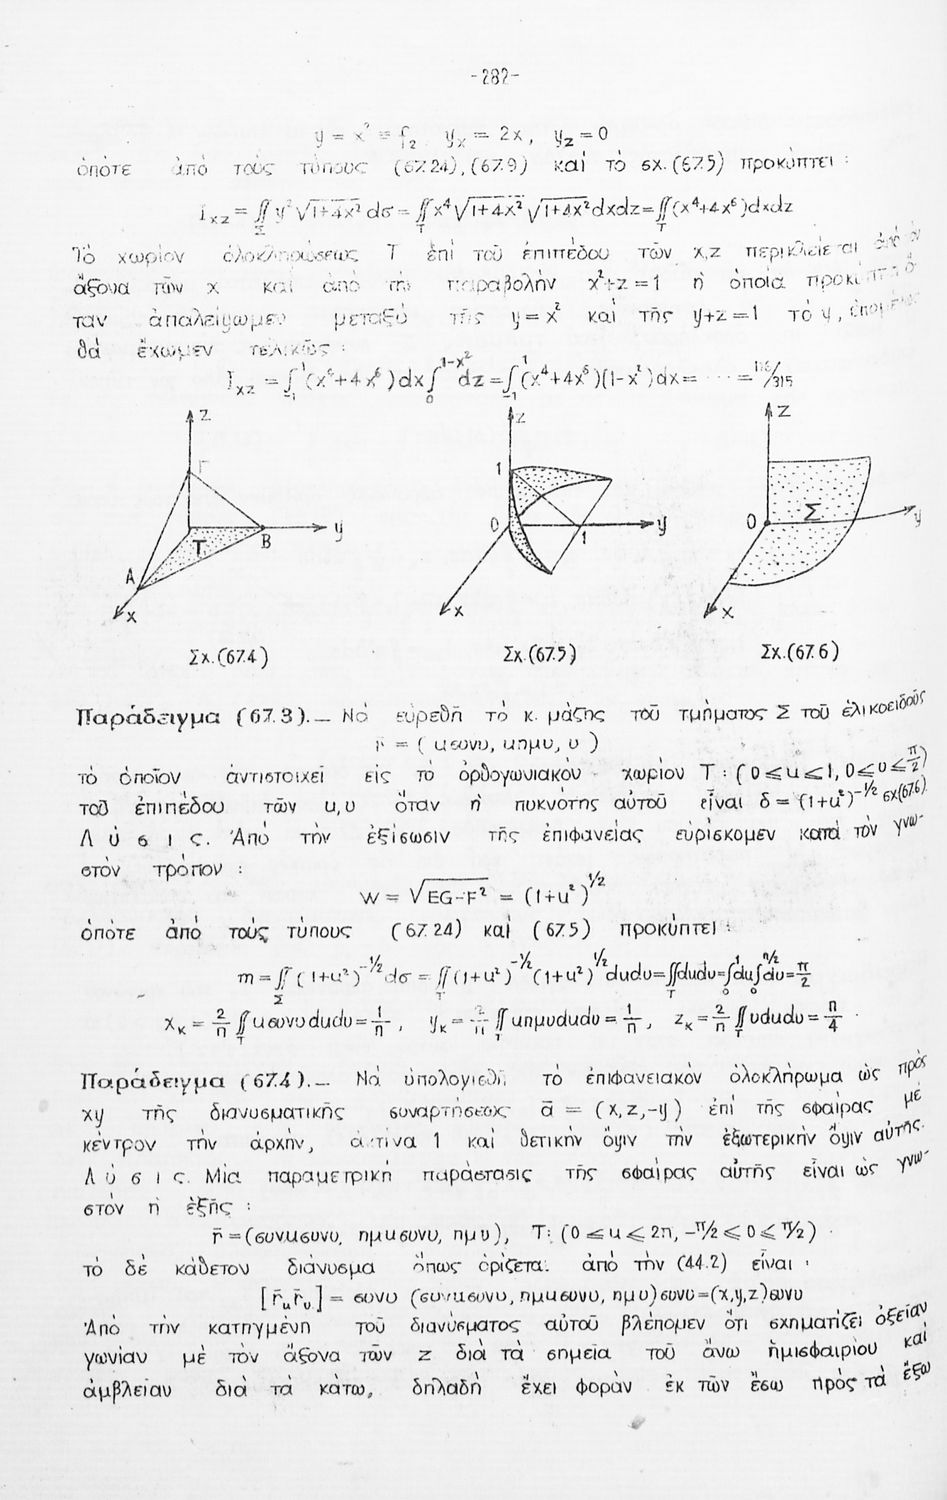 -282-
y = x² = f₂ yₓ = 2x, y_z = 0
ὁπότε ἀπό τούς τύπους (67.24), (67.9) καί τό σχ.(67.5) προκύπτει :
I_xz = ∬_Σ y²√1+4x² dσ = ∬_T x⁴√1+4x² √1+4x² dxdz = ∬_T (x⁴+4x⁶)dxdz
Τό χωρίον ὁλοκληρώσεως T ἐπί τοῦ ἐπιπέδου τῶν x,z περικλείεται ἀπό
ἄξονα τῶν x καί ἀπό τήν παραβολήν x²+z=1 ἡ ὁποία
ταν ἀπαλείψωμεν μεταξύ τῆς y=x² καί τῆς y+z=1 τό y,
θά ἔχωμεν τελικῶς :
I_xz = ∫₋₁¹(x⁴+4x⁶)dx∫₀^{1-x²} dz = ∫₋₁¹(x⁴+4x⁶)(1-x²)dx = ··· = /315
z Γ T B y A x
z 1 0 1 y x
z 0 Σ y x
Σχ.(67.4) Σχ.(67.5) Σχ.(67.6)
Παράδειγμα (67.3).— Νά εὑρεθῆ τό κ. μάζης τοῦ τμήματος Σ τοῦ ἑλικοειδοῦς
r̄ = (uσυνυ, uημυ, υ)
τό ὁποῖον ἀντιστοιχεῖ εἰς τό ὀρθογωνιακόν χωρίον T:(0⩽u⩽1, 0⩽υ⩽π/2)
τοῦ ἐπιπέδου τῶν u,υ ὅταν ἡ πυκνότης αὐτοῦ εἶναι δ = (1+u²)^{-1/2} σχ(67.6)
Λύσις. Ἀπό τήν ἐξίσωσιν τῆς ἐπιφανείας εὑρίσκομεν κατά τόν γνω-
στόν τρόπον :
W = √EG-F² = (1+u²)^{1/2}
ὁπότε ἀπό τούς τύπους (67.24) καί (67.5) προκύπτει :
m = ∬_Σ (1+u²)^{-1/2} dσ = ∬_T (1+u²)^{-1/2}(1+u²)^{1/2}dudυ = ∬_T dudυ = ∫₀¹du∫₀^{π/2}dυ = π/2
x_κ = 2/π ∬_T uσυνυdudυ = 1/π , y_κ = 2/π ∬_T uημυdudυ = 1/π , z_κ = 2/π ∬_T υdudυ = π/4 .
Παράδειγμα (67.4).— Νά ὑπολογισθῆ τό ἐπιφανειακόν ὁλοκλήρωμα ὡς πρός
xy τῆς διανυσματικῆς συναρτήσεως ᾱ = (x,z,-y) ἐπί τῆς σφαίρας μέ
κέντρον τήν ἀρχήν, ἀκτῖνα 1 καί θετικήν ὄψιν τήν ἐξωτερικήν ὄψιν αὐτῆς.
Λύσις. Μία παραμετρική παράστασις τῆς σφαίρας αὐτῆς εἶναι ὡς γνω-
στόν ἡ ἑξῆς :
r̄ = (συνuσυνυ, ημuσυνυ, ημυ), T: (0⩽u⩽2π, -π/2⩽υ⩽π/2) .
τό δέ κάθετον διάνυσμα ὅπως ὁρίζεται ἀπό τήν (44.2) εἶναι :
[r̄_u r̄_υ] = συνυ (συνuσυνυ, ημuσυνυ, ημυ)συνυ = (x,y,z)συνυ
Ἀπό τήν κατηγμένη τοῦ διανύσματος αὐτοῦ βλέπομεν ὅτι σχηματίζει ὀξεῖαν
γωνίαν μέ τόν ἄξονα τῶν z διά τά σημεῖα τοῦ ἄνω ἡμισφαιρίου καί
ἀμβλεῖαν διά τά κάτω, δηλαδή ἔχει φοράν ἐκ τῶν ἔσω πρός τά ἔξω